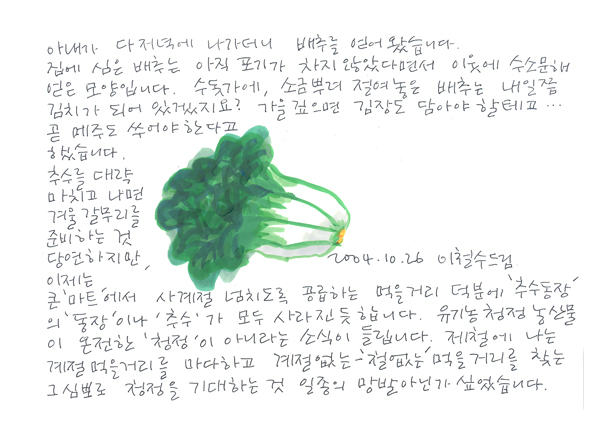 아내가 다저녁에 나가더니 배추를 얻어 왔습니다.
집에 심은 배추는 아직 포기가 차지 않았다면서 이웃에 수소문해
얻은 모양입니다. 수돗가에, 소금뿌려 절여놓은 배추는 내일쯤
김치가 되어 있겠지요? 가을 깊으면 김장도 담아야 할테고 …
곧 메주도 쑤어야 한다고
했습니다.
추수를 대략
마치고 나면
겨울 갈무리를
준비하는 것
당연하지만,
이제는
2004.10.26 이철수드림
큰 '마트'에서 사계절 넘치도록 공급하는 먹을거리 덕분에 '추수동장'
의 '동장'이나 '추수'가 모두 사라진듯 합니다. 유기농청정 농산물
이 온전한 '청정'이 아니라는 소식이 들립니다. 제철에 나는
계절먹을거리를 마다하고 계절없는 - '철없는' 먹을거리를 찾는
그 심뽀로 청정을 기대하는 것 일종의 망발아닌가 싶었습니다.